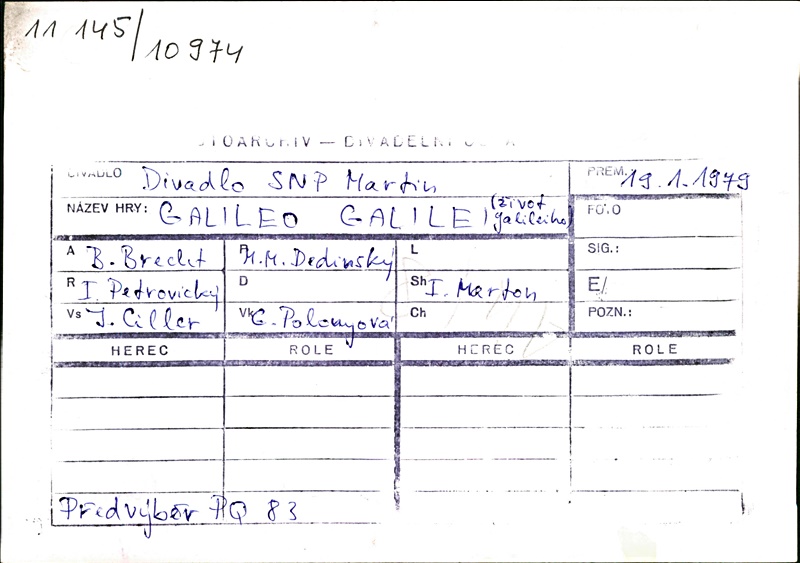 11 145/10974
DIVADLO Divadlo SNP Martin PREM. 19.1.1979
NÁZEV HRY: GALILEO GALILEI (život galileiho) FOTO
A B. Brecht P M.M. Dedinský L SIG.:
R I. Petrovický D Sh I. Marton E/
Vs J. Ciller Vk G. Polonyová Ch POZN.:
HEREC ROLE HEREC ROLE
Předvýběr PQ 83